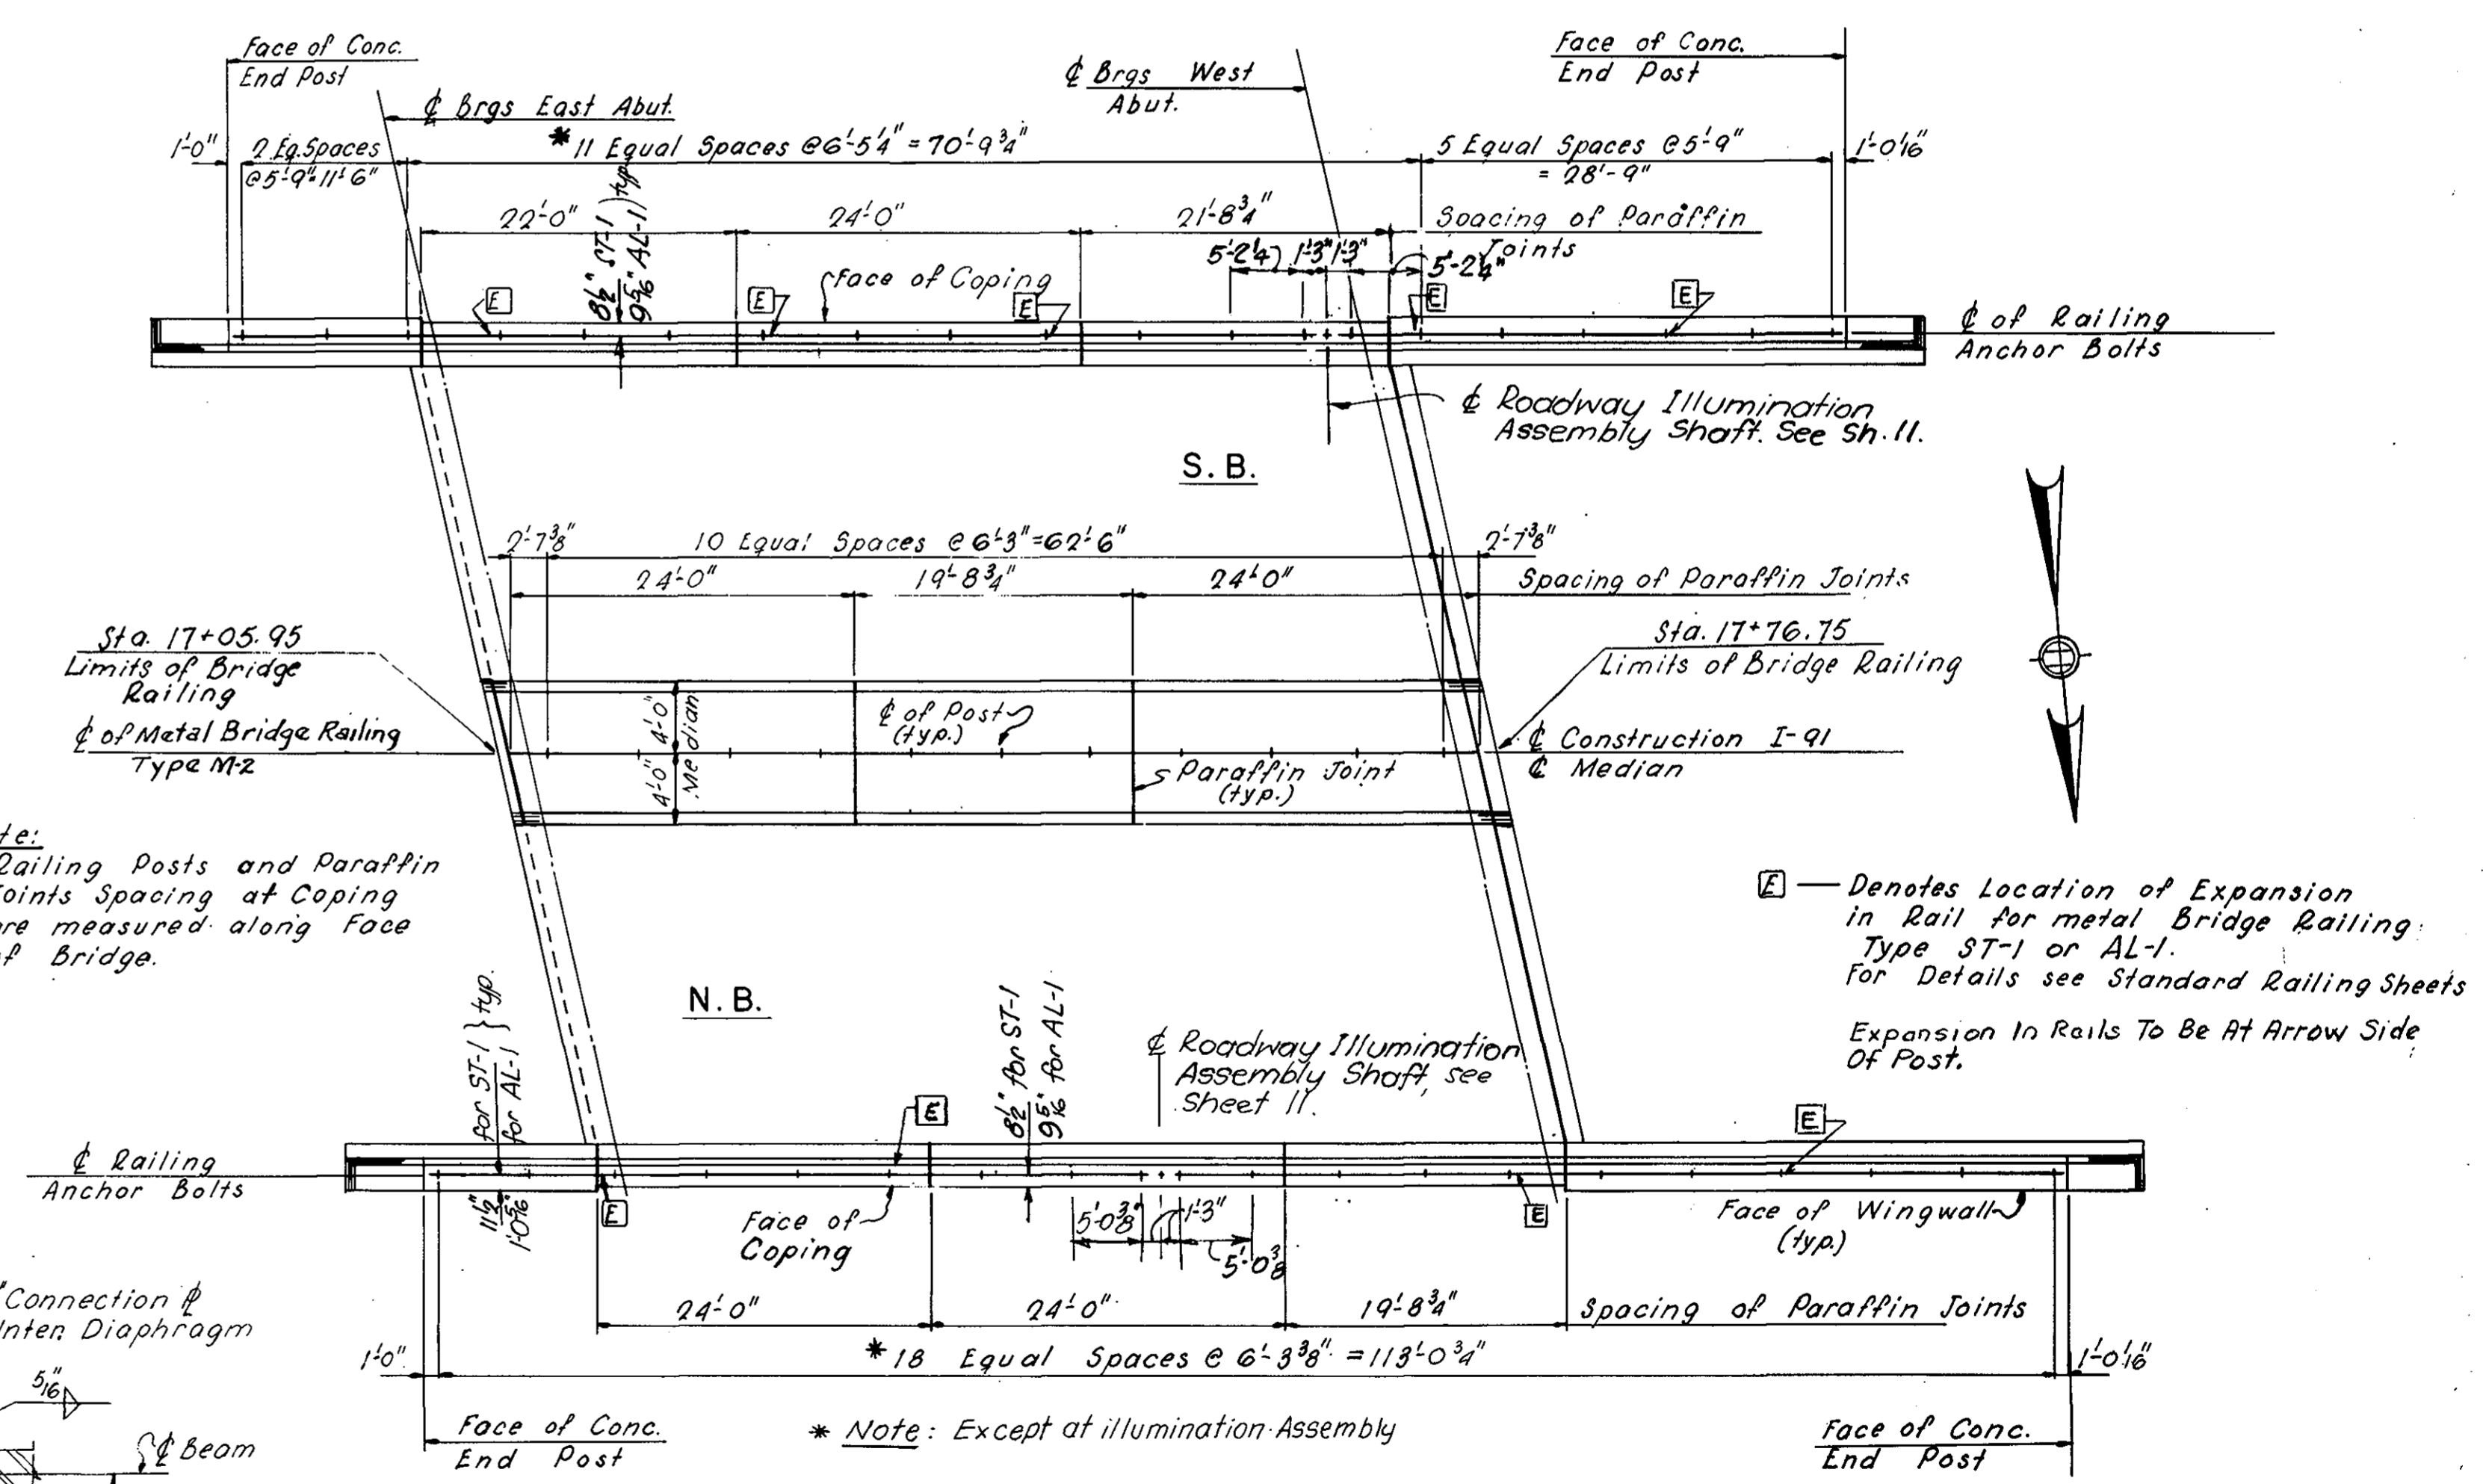 Face of Conc.
End Post
℄ Brgs East Abut.
℄ Brgs West
Abut.
Face of Conc.
End Post
1'-0"
2 Eq. Spaces
@5'-9"=11'-6"
* 11 Equal Spaces @6'-5¼" = 70'-9¾"
5 Equal Spaces @5'-9"
= 28'-9"
22'-0"
8½" ST-1 ) typ
9 5/16" AL-1 )
24'-0"
21'-8¾"
Spacing of Paraffin
Joints
5'-2¼
1'-3"
1'-3"
5'-2¼"
E
E
Face of Coping
E
E
E
℄ of Railing
Anchor Bolts
℄ Roadway Illumination
Assembly Shaft. See Sh. 11.
S.B.
2'-7⅜"
10 Equal Spaces @ 6'-3"=62'-6"
2'-7⅜"
24'-0"
19'-8¾"
24'-0"
Spacing of Paraffin Joints
Sta. 17+05.95
Limits of Bridge
Railing
Sta. 17+76.75
Limits of Bridge Railing
℄ of Metal Bridge Railing
Type M-2
4'-0"
4'-0"
Median
℄ of Post
(typ.)
Paraffin Joint
(typ.)
℄ Construction I-91
℄ Median
te:
Railing Posts and Paraffin
oints Spacing at Coping
re measured along Face
f Bridge.
E — Denotes Location of Expansion
in Rail for metal Bridge Railing
Type ST-1 or AL-1.
For Details see Standard Railing Sheets
Expansion In Rails To Be At Arrow Side
Of Post.
N.B.
for ST-1 } typ.
for AL-1
11½"
1'-0 5/16"
8½" for ST-1
9 5/16" for AL-1
℄ Roadway Illumination
Assembly Shaft, see
Sheet 11.
E
E
℄ Railing
Anchor Bolts
E
E
Face of
Coping
5'-0⅜"
1'-3"
5'-0⅜
Face of Wingwall
(typ.)
24'-0"
24'-0"
19'-8¾"
Spacing of Paraffin Joints
1'-0"
* 18 Equal Spaces @ 6'-3⅜" = 113'-0¾"
Connection ℄
Inter. Diaphragm
5/16
℄ Beam
Face of Conc.
End Post
* Note: Except at illumination Assembly
Face of Conc.
End Post